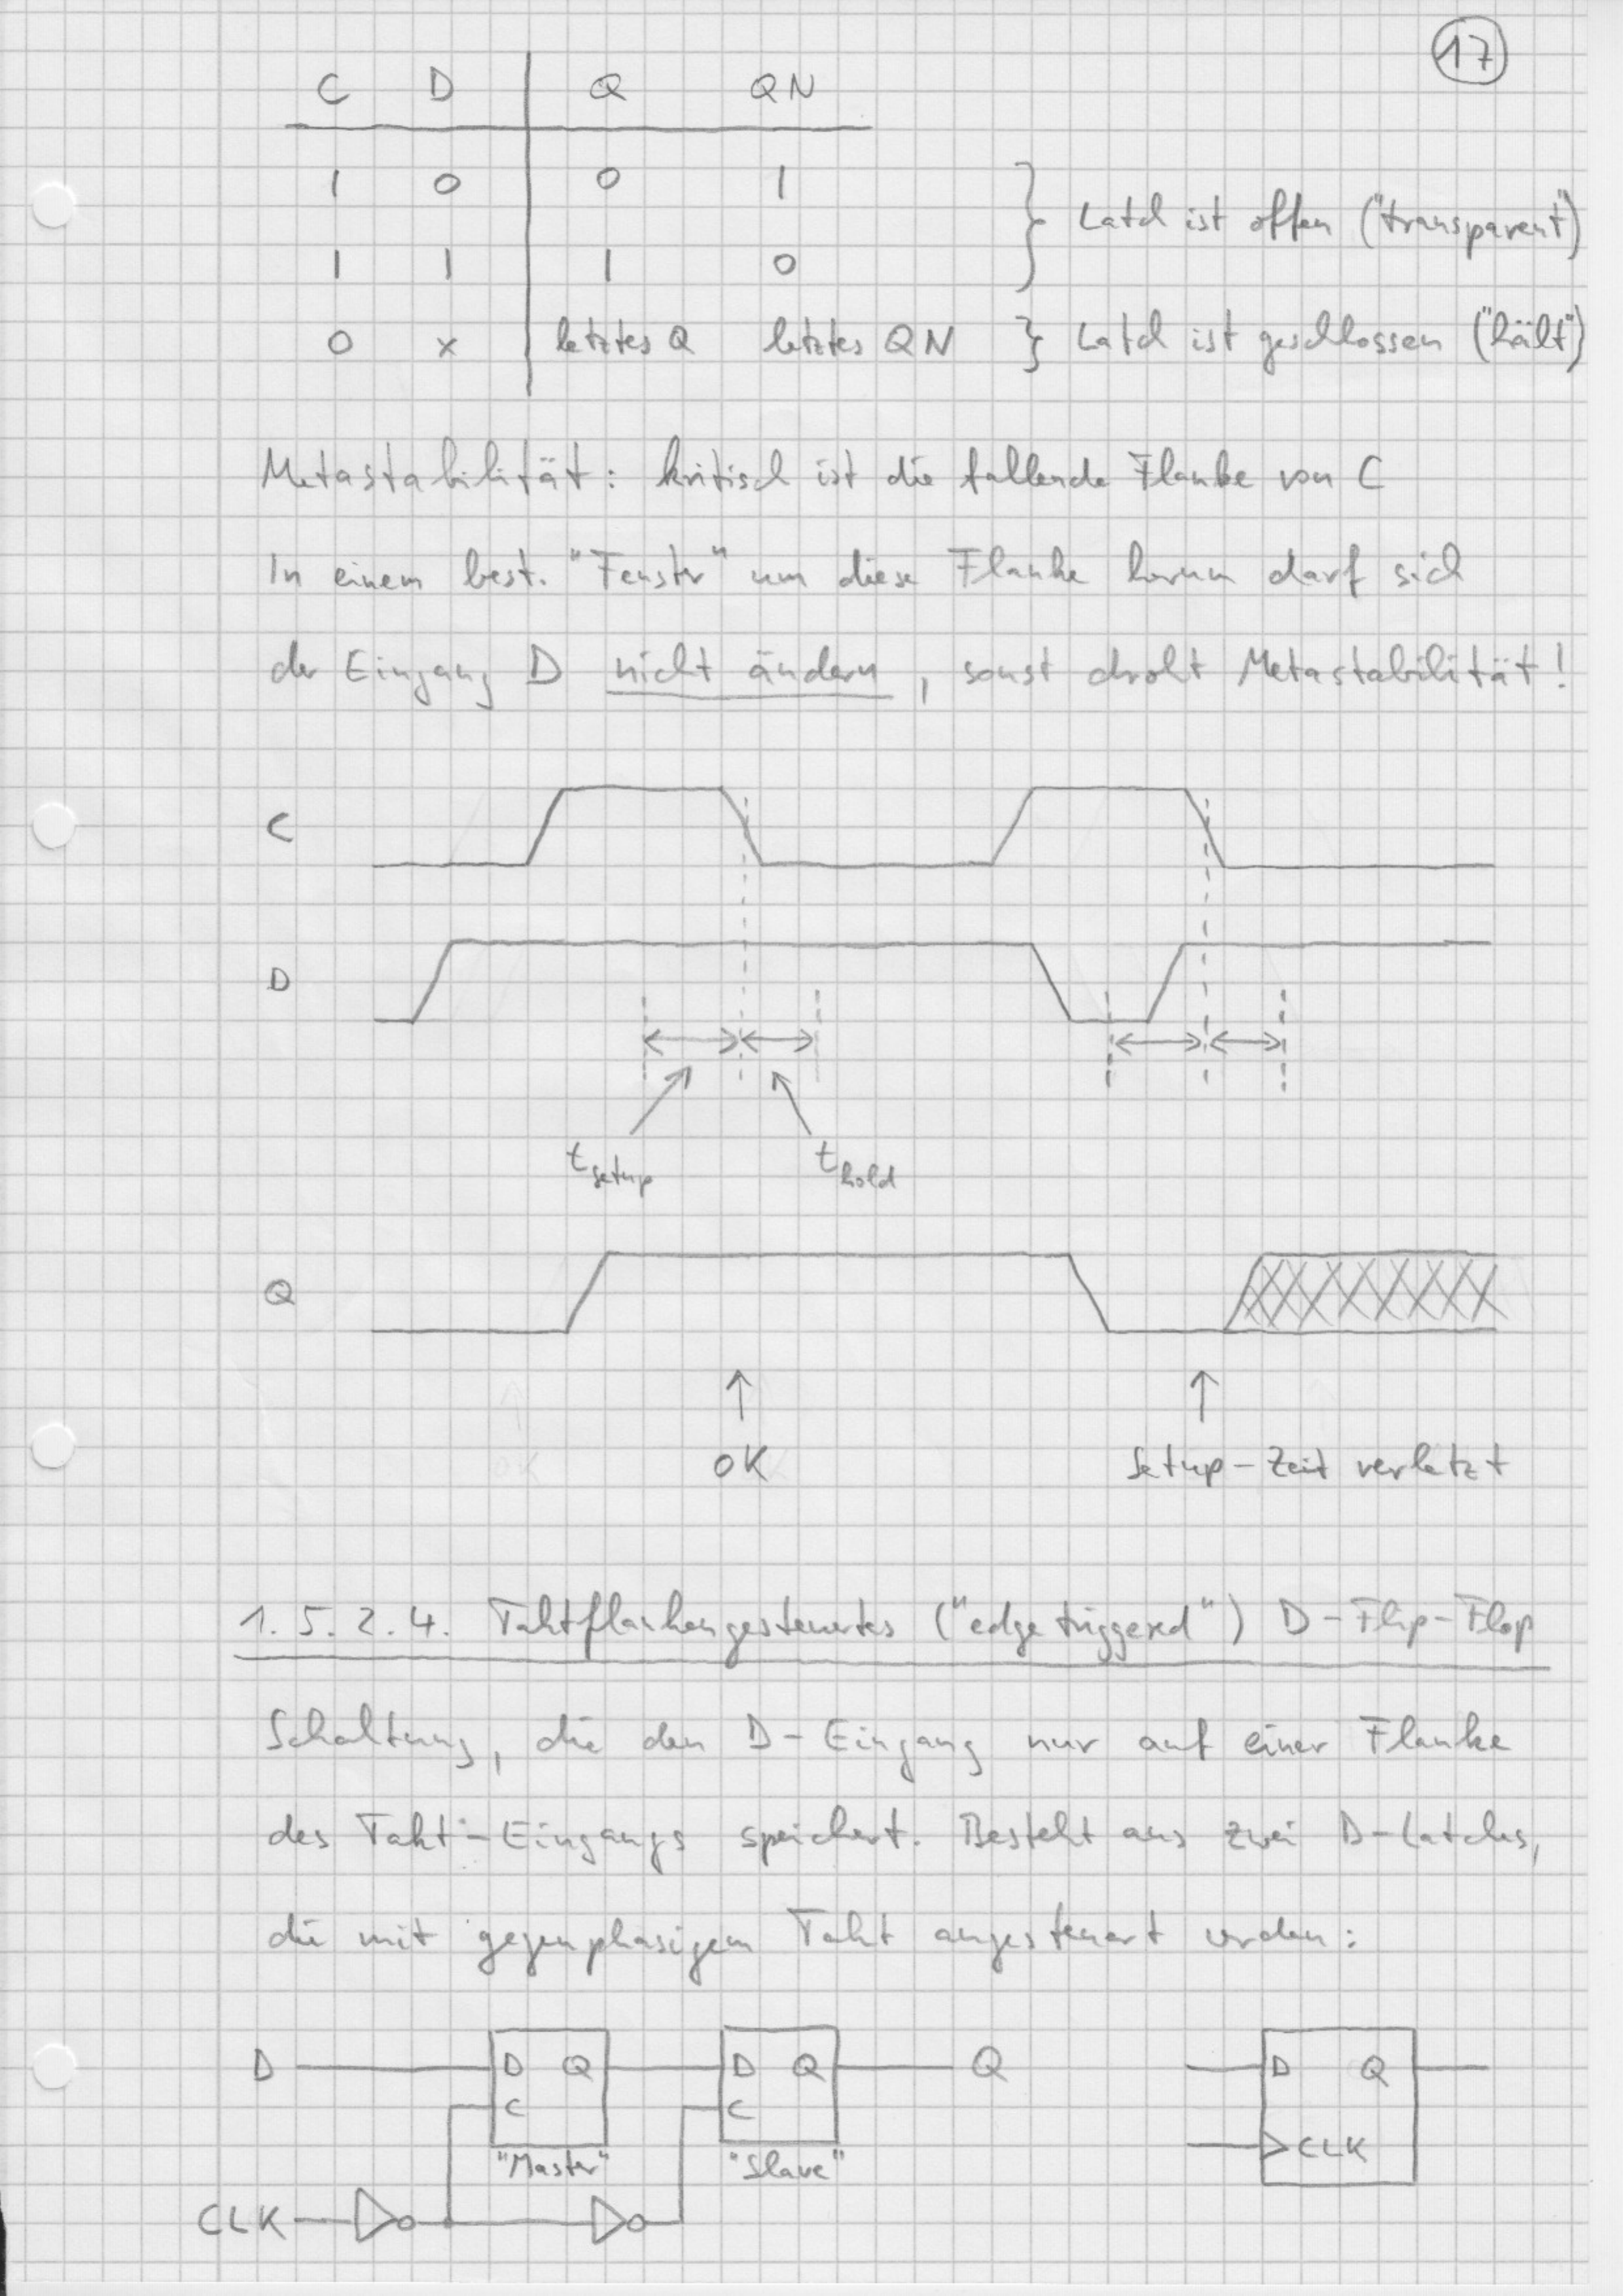 17
C D Q QN
1 0 0 1
1 1 1 0
} Latch ist offen ("transparent")
0 x letztes Q letztes QN } Latch ist geschlossen ("hält")
Metastabilität: kritisch ist die fallende Flanke von C
In einem best. "Fenster" um diese Flanke herum darf sich
der Eingang D nicht ändern, sonst droht Metastabilität!
C
D
t setup t hold
Q
OK Setup-Zeit verletzt
1.5.2.4. Taktflankengesteuertes ("edge triggered") D-Flip-Flop
Schaltung, die den D-Eingang nur auf einer Flanke
des Takt-Eingangs speichert. Besteht aus zwei D-Latches,
die mit gegenphasigem Takt angesteuert werden:
D D Q D Q Q D Q
C C
CLK
"Master" "Slave"
CLK